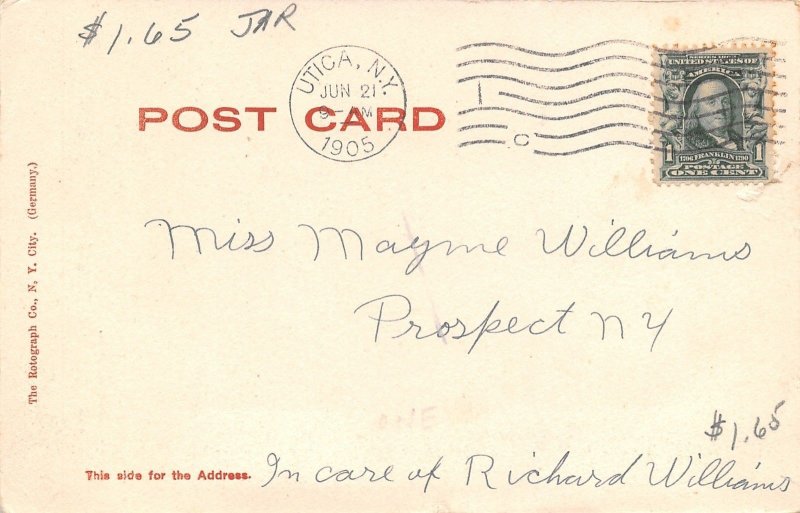 $1.65 JAR
UTICA, N.Y.
JUN 21
9- AM
1905
1
C
SERIES 1902
UNITED STATES OF
AMERICA
1 1706 FRANKLIN 1790 1
POSTAGE
ONE CENT
POST CARD
The Rotograph Co., N. Y. City. (Germany.)
Miss Mayme Williams
Prospect NY
$1.65
This side for the Address.
In care of Richard Williams